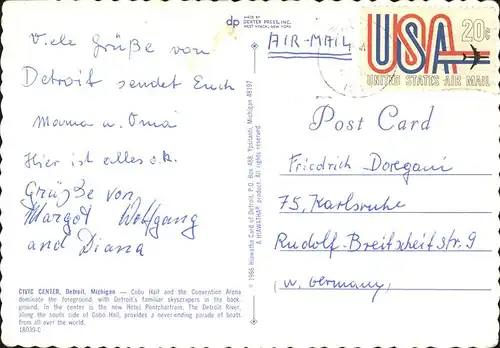 MADE BY
dp DEXTER PRESS, INC.
WEST NYACK, NEW YORK
Viele Grüße von
Detroit sendet Euch
Mama u. Oma
Hier ist alles o.k.
Grüße von
Margot Wolfgang
and Diana
CIVIC CENTER, Detroit, Michigan — Cobo Hall and the Convention Arena
dominate the foreground with Detroit's familiar skyscrapers in the back-
ground. In the center is the new Hotel Pontchartrain. The Detroit River,
along the south side of Cobo Hall, provides a never-ending parade of boats
from all over the world.
18039-C
© 1966 Hiawatha Card of Detroit, P.O. Box 488, Ypsilanti, Michigan 48197
A HIAWATHA® product. All rights reserved.
AIR-MAIL
USA 20c
UNITED STATES AIR MAIL
Post Card
Friedrich Doregani
75, Karlsruhe
Rudolf-Breitscheit str. 9
(W. Germany)